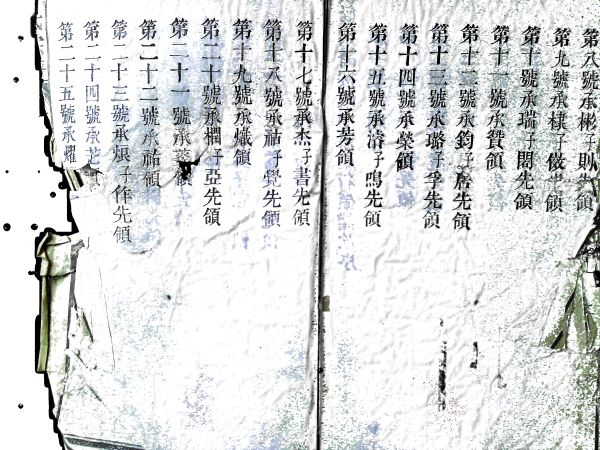 第八號承彬子則先領
第九號承棣子俊先領
第十號承瑞子閣先領
第十一號承贊領
第十二號承鈞子詹先領
第十三號承璐子孚先領
第十四號承榮領
第十五號承濬子鳴先領
第十六號承芳領
第十七號承杰子書先領
第十八號承祜子覺先領
第十九號承熾領
第二十號承櫚子亞先領
第二十一號承領
第二十二號承祐領
第二十三號承子作先領
第二十四號承芝
第二十五號承耀